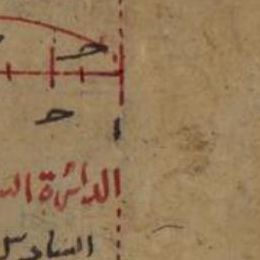 ح
ح
ا
الدائرة
السادس